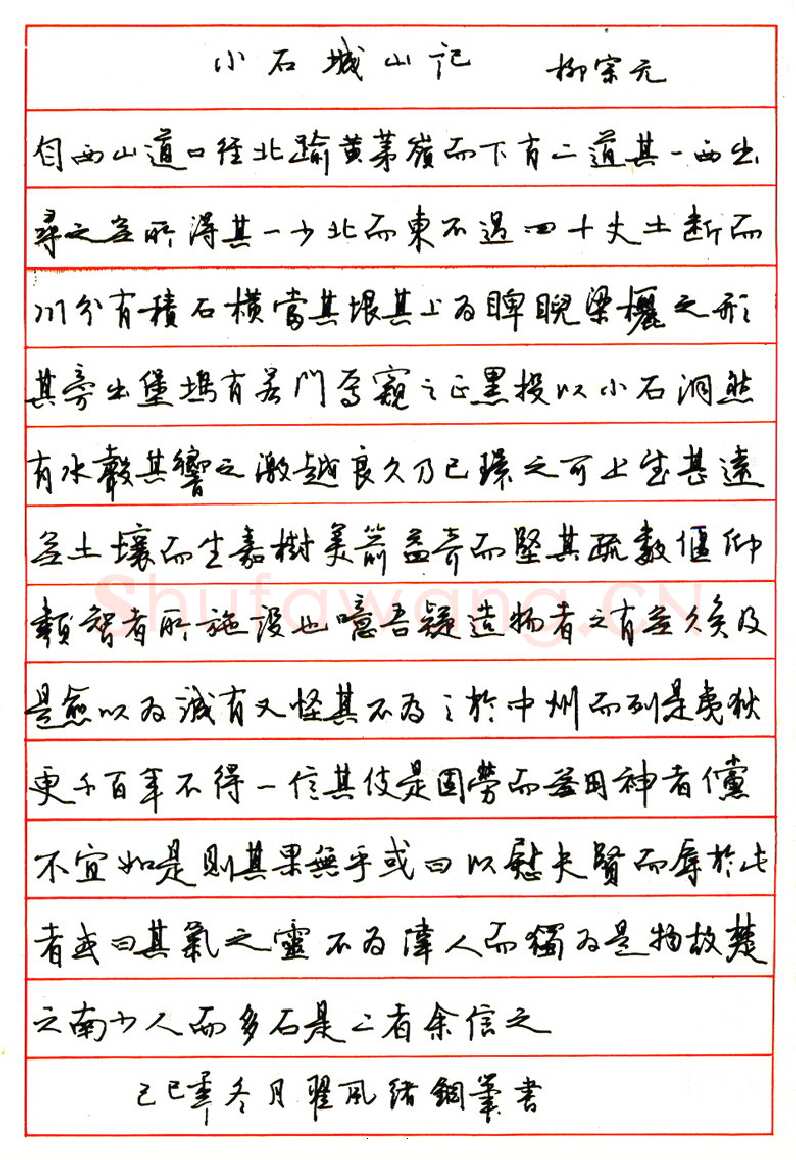 小石城山记 柳宗元
自西山道口径北踰黄茅嶺而下有二道其一西出
尋之無所得其一少北而東不過四十丈土断而
川分有積石橫當其垠其上為睥睨梁欐之形
其旁出堡塢有若門焉窺之正黑投以小石洞然
有水聲其響之激越良久乃已環之可上望甚遠
無土壤而生嘉樹美箭益奇而堅其疏數偃仰
類智者所施設也噫吾疑造物者之有無久矣及
是愈以為誠有又怪其不為之於中州而列是夷狄
更千百年不得一信其伎是固勞而無用神者儻
不宜如是則其果無乎或曰以慰夫賢而辱於此
者或曰其氣之靈不為偉人而獨為是物故楚
之南少人而多石是二者余信之
己巳年冬月翟風緒鋼筆書
Shufawang.CN